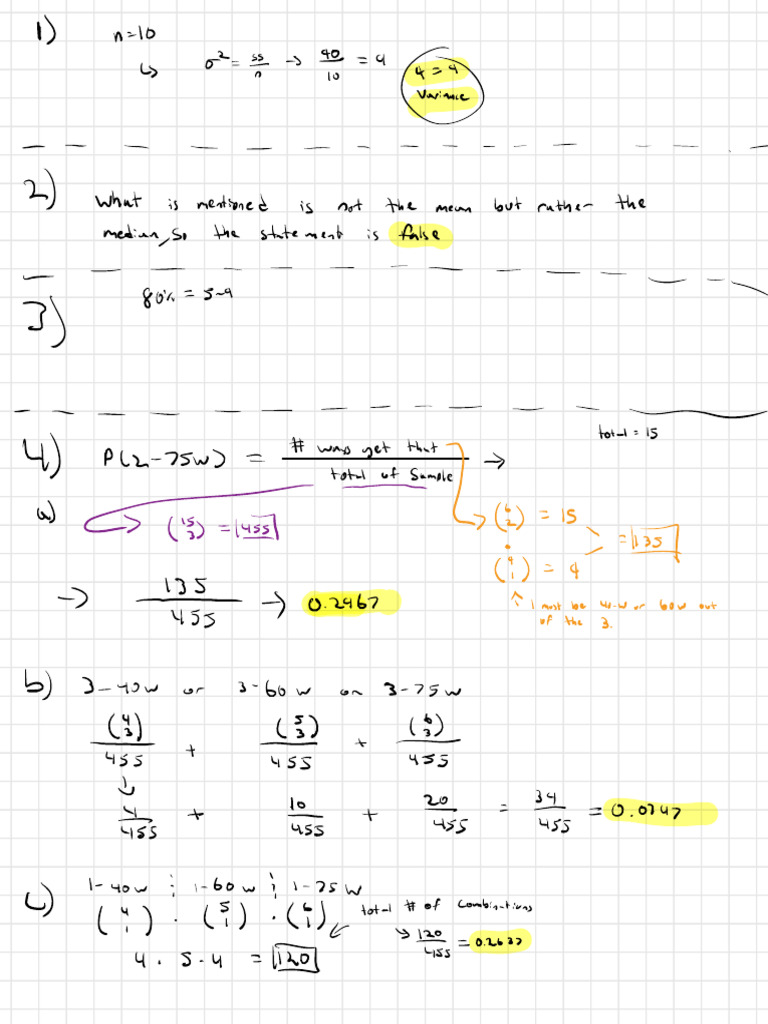 1) n=10
↳ σ² = ss/n → 40/10 = 4
4 = 4
Variance
2) What is mentioned is not the mean but ruther the
median, so the statement is false
3) 80% = 5-9
4) P(2-75W) = # ways get that / total of sample →
total = 15
a) (15 3) = 455
(6 2) = 15
(9 1) = 9
= 135
→ 135/455 → 0.2967
↑ 1 must be 40-W or 60W out
of the 3.
b) 3-40W or 3-60W or 3-75W
(4 3)/455 + (5 3)/455 + (6 3)/455
4/455 + 10/455 + 20/455 = 34/455 = 0.0747
c) 1-40W ; 1-60W ; 1-75W
(4 1) · (5 1) · (6 1)
total # of combinations
4 · 5 · 4 = 120
→ 120/455 = 0.2637